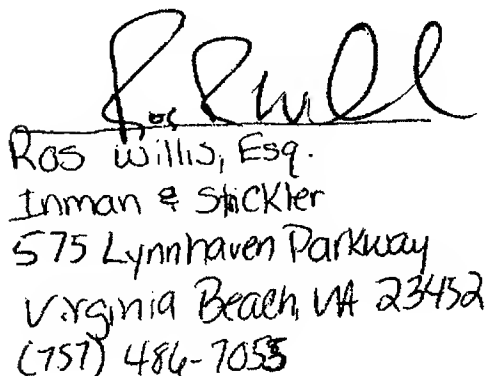 Ros Willis, Esq.
Inman & Stickler
575 Lynnhaven Parkway
Virginia Beach, VA 23452
(757) 486-7055